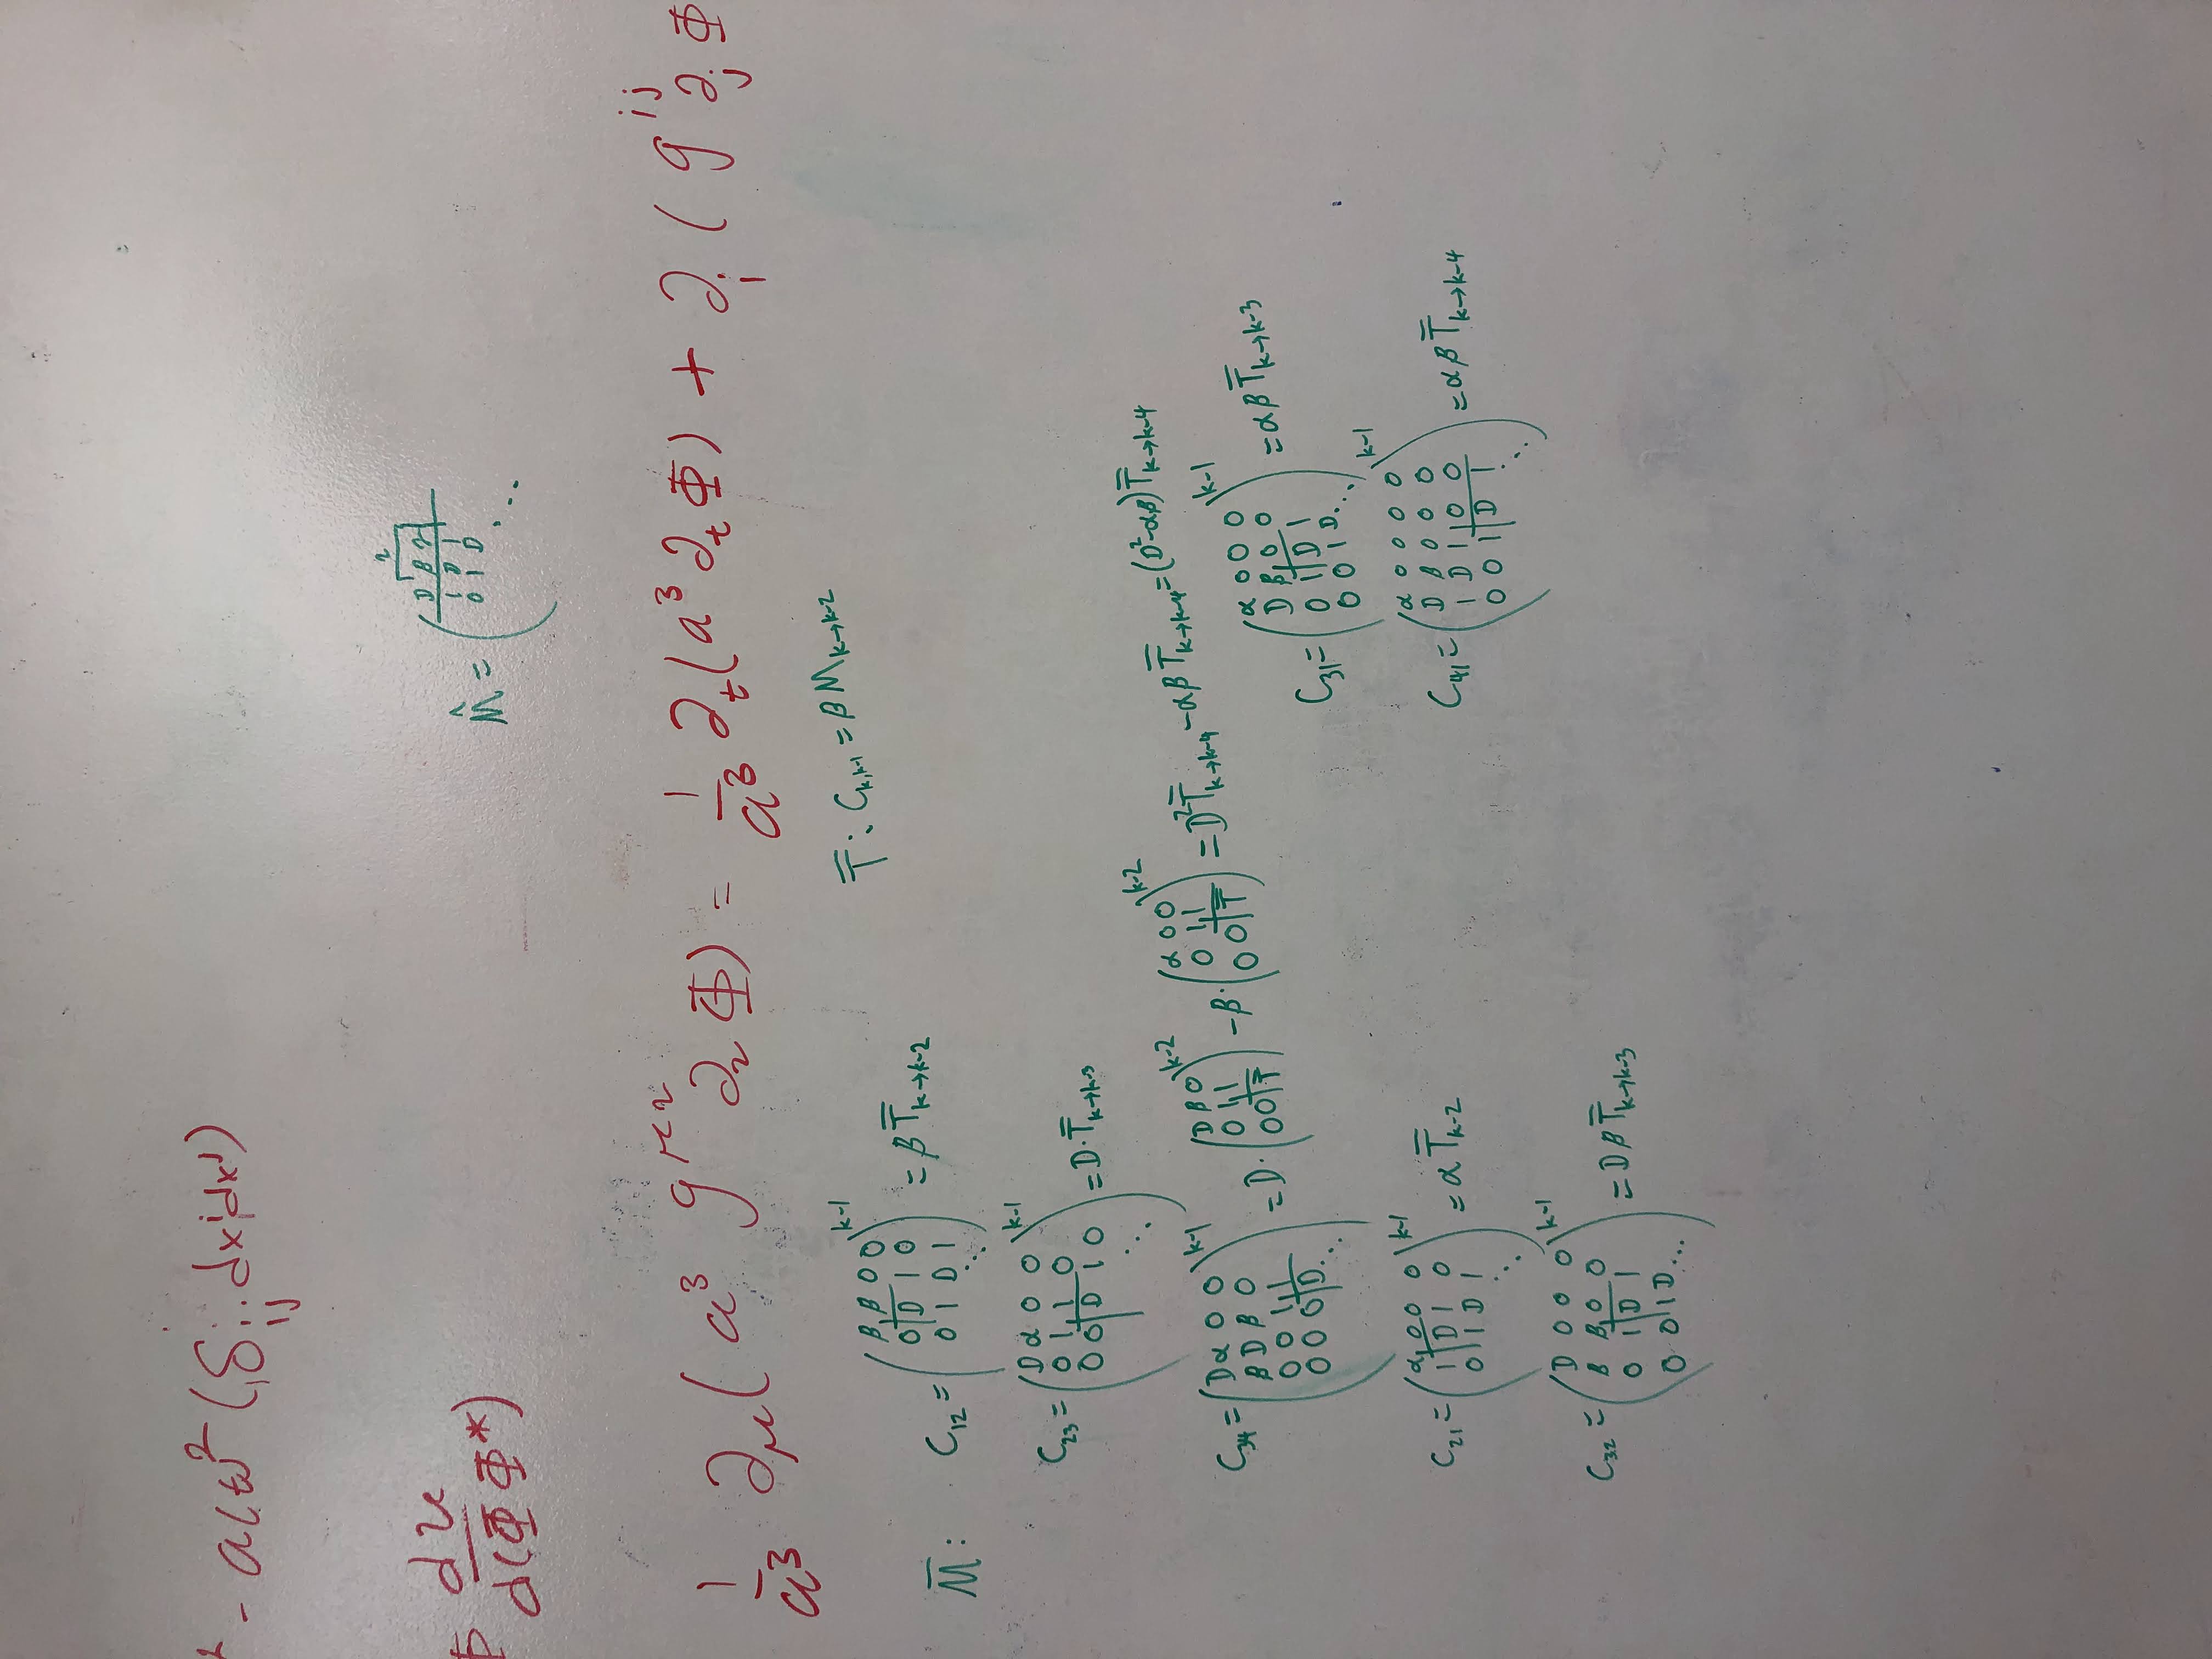 ² - a(t)² (δ_ij dx^i dx^j)
Φ du / d(ΦΦ*)
2
M̂ = ( D β
1 D 1
0 1 D
⋱
1/a³ ∂_μ( a³ g^μν ∂_ν Φ) = 1/a³ ∂_t(a³ ∂_t Φ) + ∂_i ( g^ij ∂_j Φ
T̿ : C_k,k-1 = β M_k→k-2
M̄ :
C₁₂ = ( β β 0 0
0 D 1 0
0 1 D 1
⋱ )^k-1 = β T̿_k→k-2
C₂₃ = ( D α 0 0
0 1 1 0
0 0 D 1 0
⋱ )^k-1 = D · T̿_k→k-3
C₃₄ = ( D α 0 0
β D β 0
0 0 1 1
0 0 0 D ⋱ )^k-1 = D · ( D β 0
0 1 1
0 0 T̿ )^k-2 - β · ( α 0 0
0 1 1
0 0 T̿ )^k-2 = D² T̿_k→k-4 - αβ T̿_k→k-4 = (D² - αβ) T̿_k→k-4
C₃₁ = ( α 0 0 0
D β 0 0
0 1 D 1
0 0 1 D ⋱ )^k-1 = αβ T̿_k→k-3
C₂₁ = ( α 0 0 0
1 D 1 0
0 1 D 1
⋱ )^k-1 = α T̿_k-2
C₄₁ = ( α 0 0 0 0
D β 0 0 0
1 D 1 0 0
0 0 1 D 1
⋱ )^k-1 = αβ T̿_k→k-4
C₃₂ = ( D 0 0 0
β β 0 0
0 1 D 1
0 0 1 D ⋱ )^k-1 = Dβ T̿_k→k-3